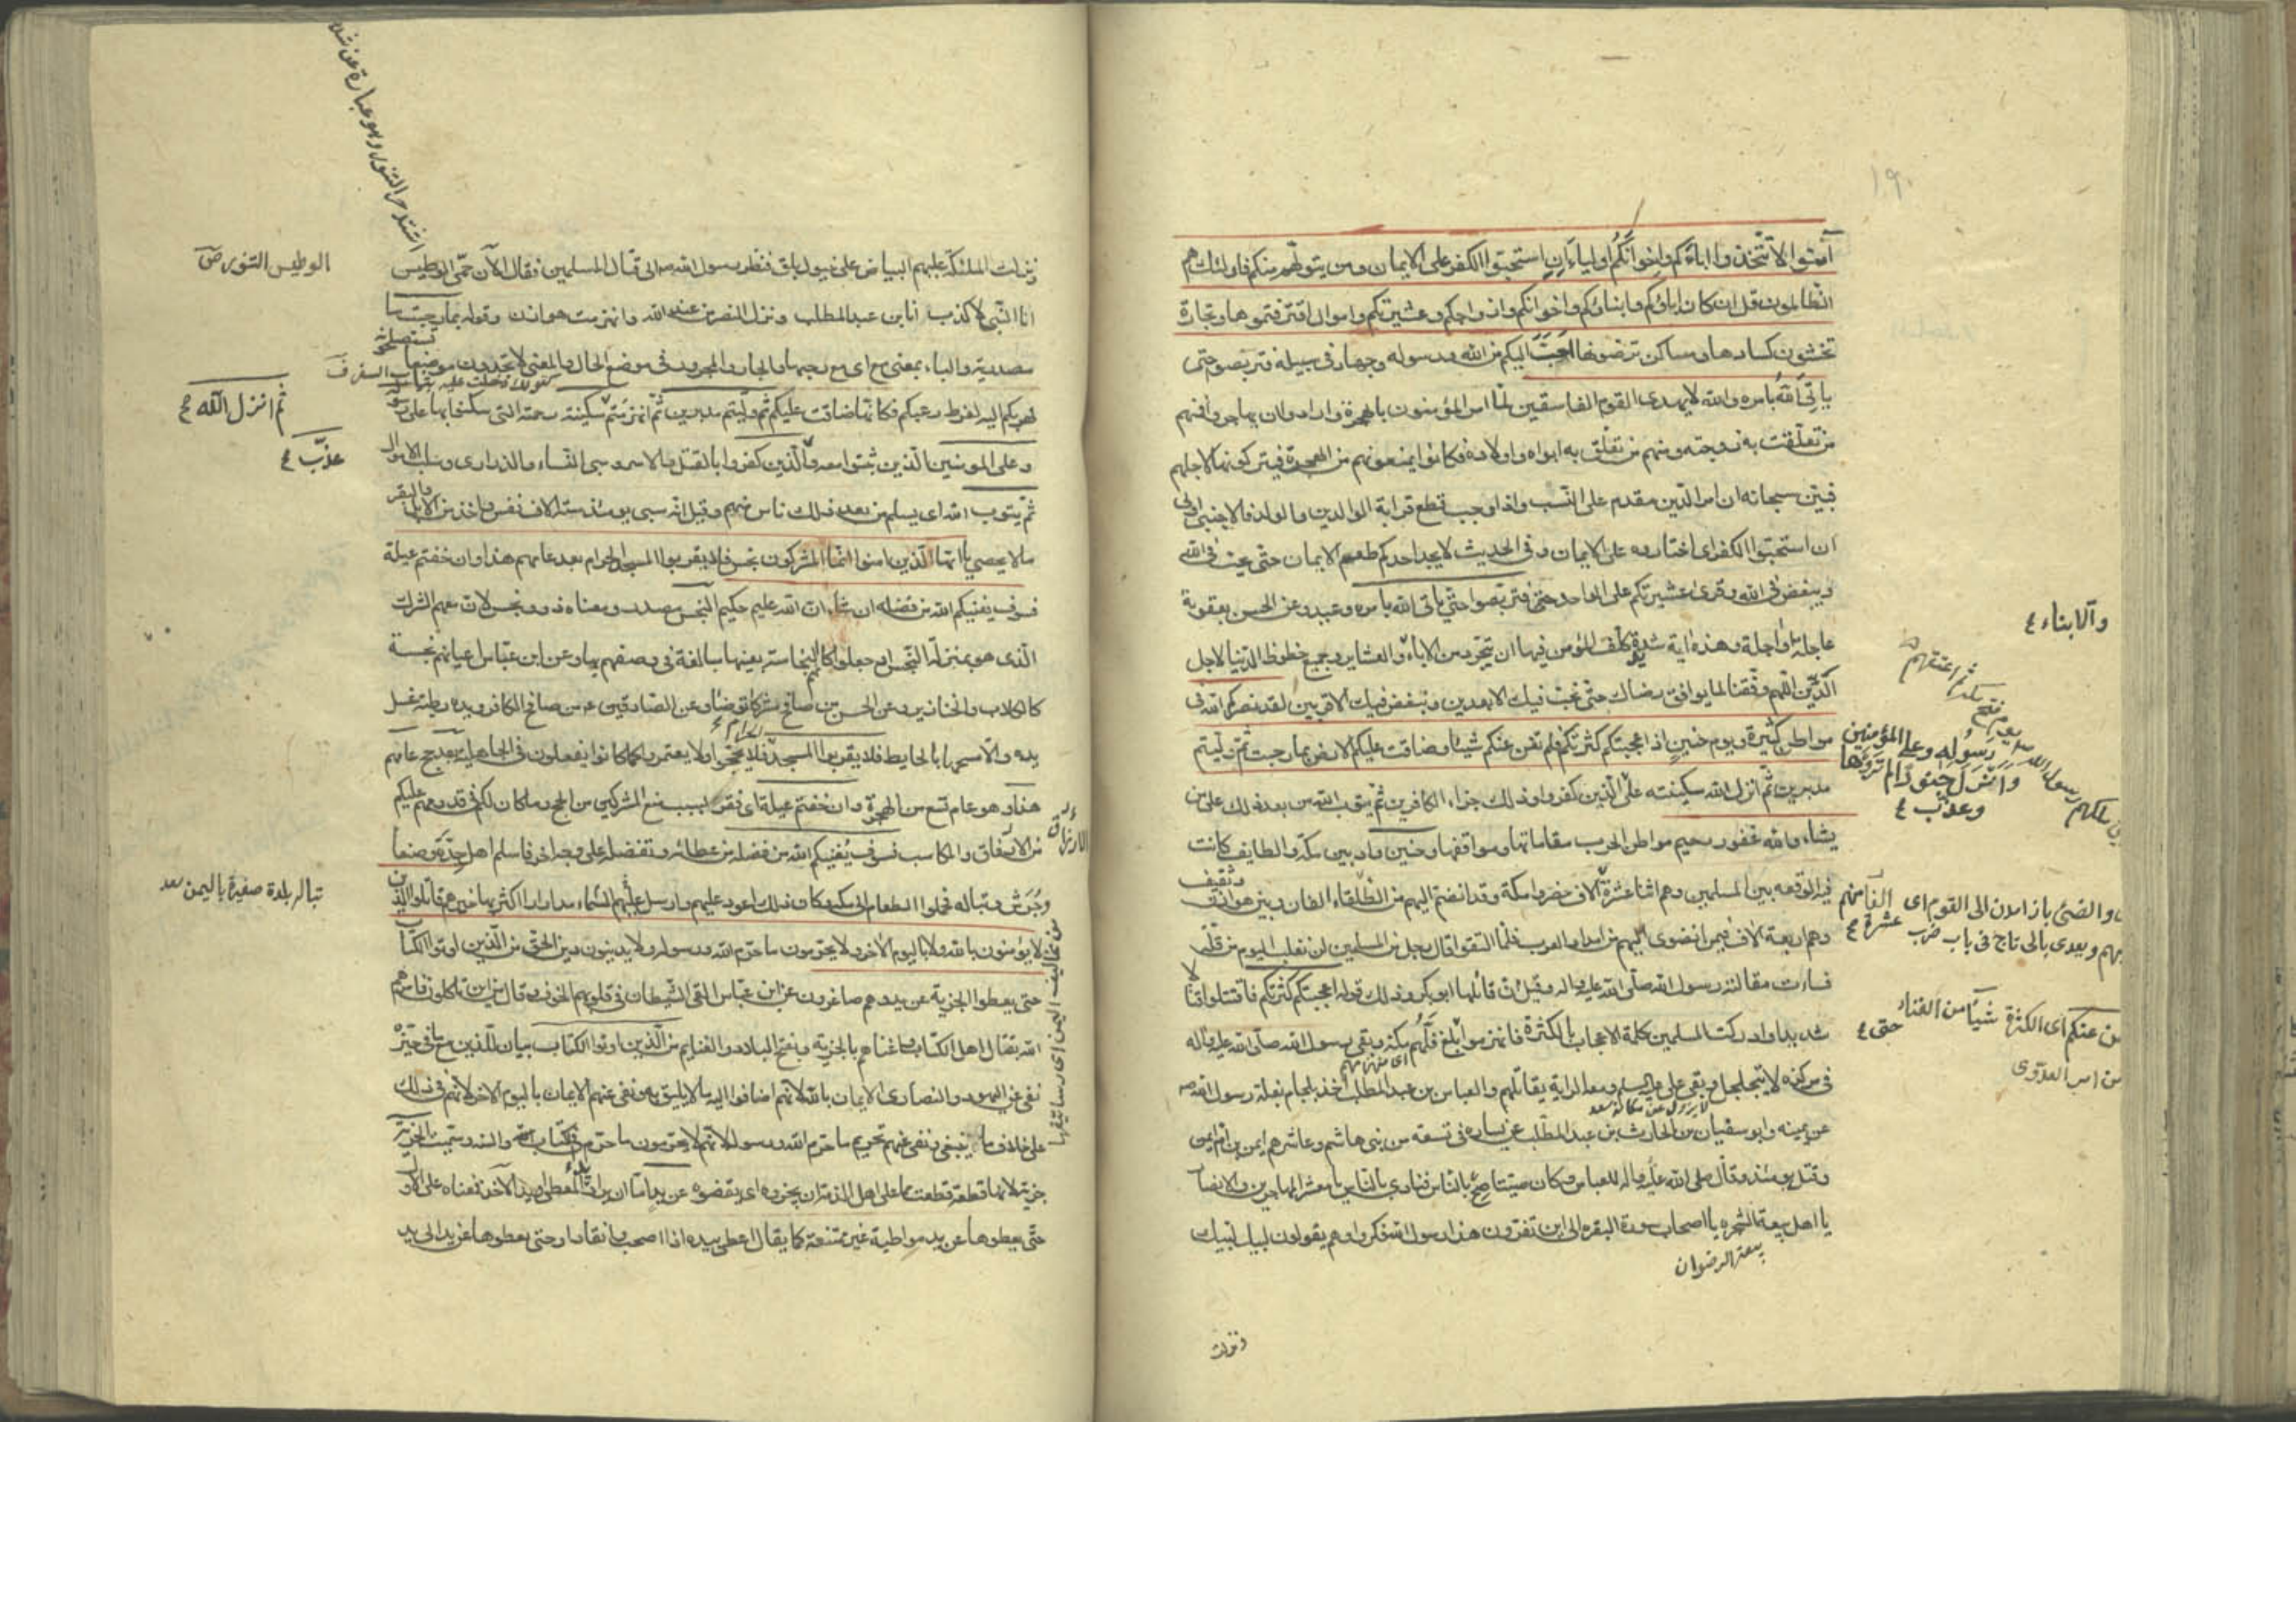 ١٩٠
آمنوا لا تتخذوا اباءكم واخوانكم اولياء ان استحبوا الكفر على الايمان ومن يتولهم منكم فاولئك هم
الظالمون قل ان كان اباؤكم وابناؤكم واخوانكم وازواجكم وعشيرتكم واموال اقترفتموها وتجارة
تخشون كسادها ومساكن ترضونها احب اليكم من الله ورسوله وجهاد في سبيله فتربصوا حتى
ياتي الله بامره والله لا يهدى القوم الفاسقين لما امر المؤمنون بالهجرة وارادوا ان يهاجروا فمنهم
من تعلقت به زوجته ومنهم من تعلق به ابواه واولاده فكانوا يمنعونهم من الهجرة فيتركونها لاجلهم
فبين سبحانه ان امر الدين مقدم على النسب واذا وجب قطع قرابة الوالدين والولد فالاجنبي اولى
ان استحبوا الكفر اى اختاروه على الايمان وفي الحديث لا يجد احدكم طعم الايمان حتى يحب في الله
ويبغض في الله وقرئ عشيرتكم على الواحد حتى فتربصوا حتى ياتي الله بامره وعيد وعن الحسن بعقوبة
عاجلة او اجلة وهذه اية شديدة كلف المؤمن فيها ان يتجرد من الاباء والعشاير وجميع حظوظ الدنيا لاجل
الدين اللهم وفقنا لما يوافق رضاك حتى نحب فيك الابعدين ونبغض فيك الاقربين لقد نصركم الله في
مواطن كثيرة ويوم حنين اذ اعجبتكم كثرتكم فلم تغن عنكم شيئا وضاقت عليكم الارض بما رحبت ثم وليتم
مدبرين ثم انزل الله سكينته على الذين كفروا وذلك جزاء الكافرين ثم يتوب الله من بعد ذلك على من
يشاء والله غفور رحيم مواطن الحرب مقاماتها ومواقفها وحنين واد بين مكة والطايف كانت
فيه الوقعة بين المسلمين وهم اثنا عشرة آلاف حضروا مكة وقد انضم اليهم من الطلقاء الفان وبين هوازن وثقيف
وهم اربعة آلاف فيمن انضوى اليهم من امداد العرب فلما التقوا قال رجل من المسلمين لن نغلب اليوم من قلة
فساءت مقالته رسول الله صلى الله عليه واله وقيل ان قائلها ابو بكر وذلك قوله اعجبتكم كثرتكم فاقتتلوا قتالا
شديدا وادركت المسلمين كلمة الاعجاب بالكثرة فانهزموا وبلغ فلهم مكة وبقي رسول الله صلى الله عليه واله
اى منهزمهم
في مركزه لا يتحلحل وبقي علي عليه السلم ومعه الراية يقاتلهم والعباس بن عبد المطلب اخذ بلجام بغلة رسول الله صه
لا يزول عن مكانه سعد
عن يمينه وابو سفيان بن الحارث بن عبد المطلب عن يساره في تسعة من بني هاشم وعاشرهم ايمن بن ام ايمن
وقتل يومئذ وقال صلى الله عليه واله للعباس وكان صيتا صح بالناس فنادى بالناس يا معشر المهاجرين والانصار
يا اهل بيعة الشجرة يا اصحاب سورة البقره الى اين تفرون هذا رسول الله فكروا وهم يقولون لبيك لبيك
بيعة الرضوان
ونزلت
والابناء ع
رسوله وعلى المؤمنين
وانزل جنودا لم تروها
وعذب ع
الفا منهم
عشرة ع
حتى ع
ونزلت الملئكة عليهم البياض على خيول بلق فنظر رسول الله صه الى قتال المسلمين فقال الآن حمى الوطيس
انا النبي لا كذب انا ابن عبد المطلب ونزل النصر من عند الله وانهزمت هوازن وقوله بما رحبت ما
مصدرية والباء بمعنى مع اى مع رحبها والجار والمجرور في موضع الحال والمعنى لا تجدون موضعا تستصلحونه
لهربكم اليه لفرط رعبكم فكانها ضاقت عليكم ثم وليتم مدبرين ثم انهزمتم سكينته رحمته التي سكنوا بها على رسوله
وعلى المومنين الذين ثبتوا معه والذين كفروا بالقتل والاسر وسبي النساء والذرارى وسلب الاموال
ثم يتوب الله اى يسلم من بعد ذلك ناس منهم وقيل انه سبى يومئذ ستة الاف نفس واخذ من الابل والبقر
ما لا يحصى يا ايها الذين امنوا انما المشركون نجس فلا يقربوا المسجد الحرام بعد عامهم هذا وان خفتم عيلة
فسوف يغنيكم الله من فضله ان شاء ان الله عليم حكيم النجس مصدر ومعناه ذوو نجس لان معهم الشرك
الذى هو بمنزلة النجس او جعلوا كانهم النجاسة بعينها مبالغة في وصفهم بها وعن ابن عباس اعيانهم نجسة
كالكلاب والخنازير وعن الحسن من صافح مشركا توضا وعن الصادقين ع من صافح الكافر ويده رطبة غسل
يده والا مسحها بالحايط فلا يقربوا المسجد الحرام فلا يحجوا ولا يعتمروا كما كانوا يفعلون في الجاهلية بعد حج عامهم
هذا وهو عام تسع من الهجرة وان خفتم عيلة اى فقرا بسبب منع المشركين من الحج وما كان لكم في قدومهم عليكم
من الارفاق والمكاسب فسوف يغنيكم الله من فضله من عطائه وتفضله على وجه اخر فاسلم اهل جدة وصنعا
وجرش وتباله فحملوا الطعام الى مكة وكان ذلك اعود عليهم وارسل عليهم السماء مدرارا اكثر بها خيرهم قاتلوا الذين
لا يؤمنون بالله ولا باليوم الاخر ولا يحرمون ما حرم الله ورسوله ولا يدينون دين الحق من الذين اوتوا الكتاب
حتى يعطوا الجزية عن يد وهم صاغرون عن ابن عباس القى الشيطان في قلوبهم الخوف وقال من اين تاكلون فامرهم
الله بقتال اهل الكتاب واغناهم بالجزية وبفتح البلاد والغنايم من الذين اوتوا الكتاب بيان للذين مع ما في حيزه
نفى عن اليهود والنصارى الايمان بالله لانهم اضافوا اليه ما لا يليق به ونفى عنهم الايمان باليوم الاخر لانهم في ذلك
على خلاف ما ينبغي ونفى عنهم تحريم ما حرم الله ورسوله لانهم لا يحرمون ما حرم في الكتاب والسنة وسميت الجزية
جزية لانها قطعة قطعت مما على اهل الذمة ان يجزوه اى يقضوه عن يد اما ان يراد يد المعطى او يد الآخذ فمعناه على الاول
حتى يعطوها عن يد مواطية غير ممتنعة كما يقال اعطى بيده اذا اصحب وانقاد او حتى يعطوها عن يد الى يد
الوطيس التنور ص
ثم انزل الله ع
عذب ع
تباله بلدة صغيرة باليمن سعد